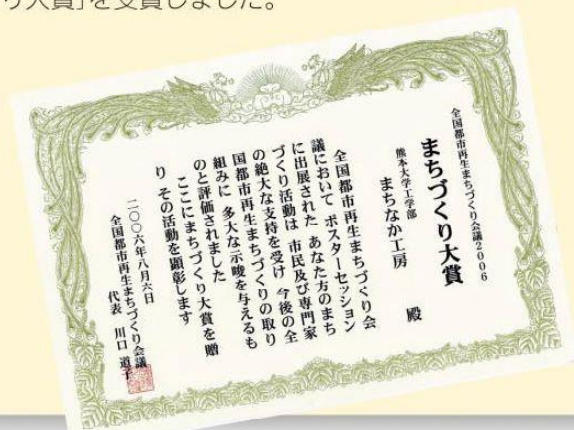 り大賞」を受賞しました。
全国都市再生まちづくり会議2006
まちづくり大賞
熊本大学工学部
まちなか工房
殿
全国都市再生まちづくり会
議において ポスターセッション
に出展された あなた方のまち
づくり活動は 市民及び専門家
の絶大な支持を受け 今後の全
国都市再生まちづくりの取り
組みに 多大な示唆を与えるも
のと評価されました
ここにまちづくり大賞を贈
り その活動を顕彰します
二〇〇六年八月六日
全国都市再生まちづくり会議
代表 川口 道子